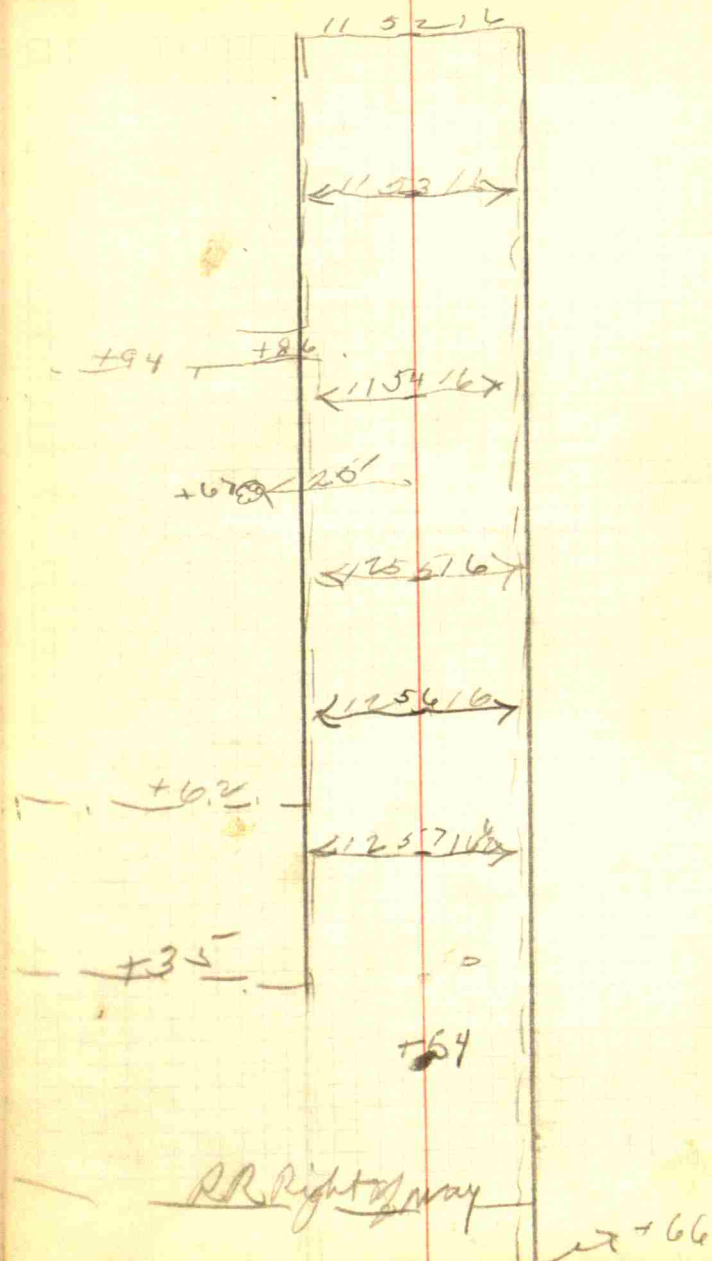 11 52 16
11 53 16
+94 +86
11 54 16
+67 20'
12 55 16
12 56 16
+62
12 57 16
+35
+54
RR Right of way
+66